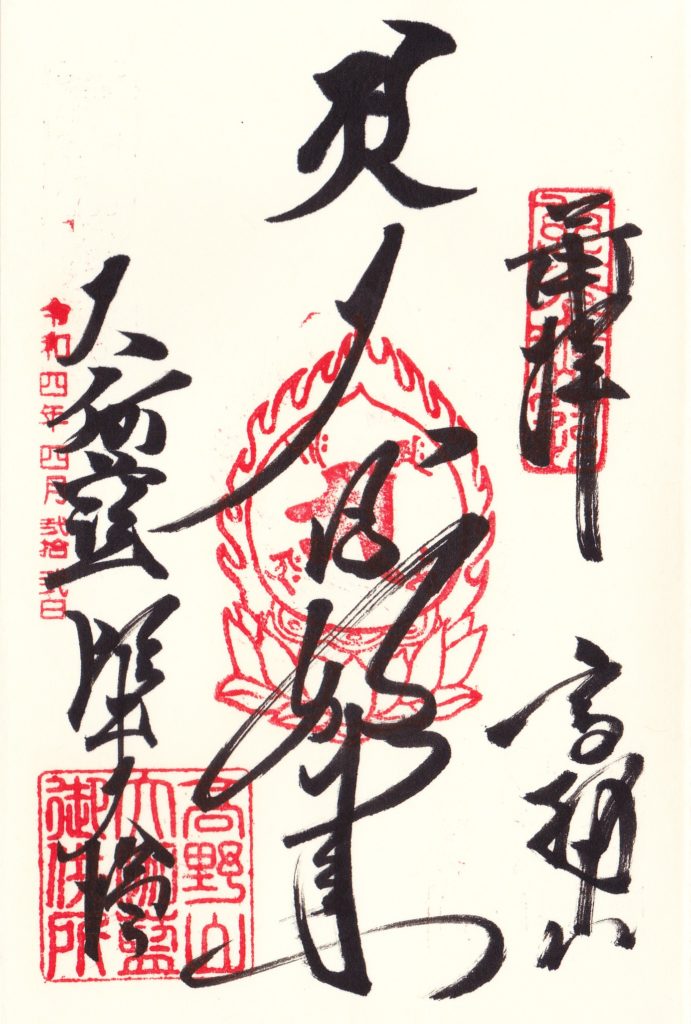 奉拝
高野山
大日如来
大伽藍 根本大塔
令和四年四月弐拾弐日
高野山
大伽藍
御供所